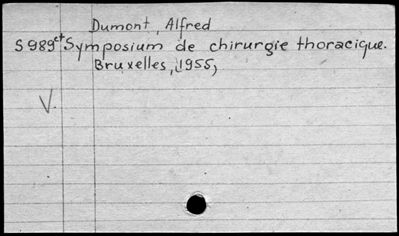 Dumont, Alfred
S989ct Symposium de chirurgie thoracique.
Bruxelles, (1955)
V.